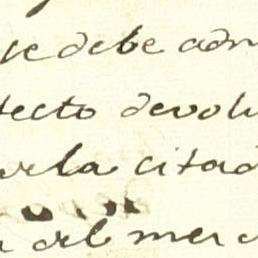 se debe adm
fecto devolu
la citad
del mer